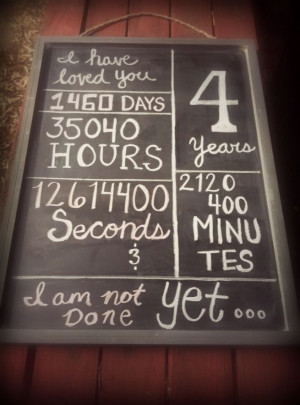 I have
loved you
1460 DAYS
35040
HOURS
4
Years
12614400
Seconds
&
2120
400
MINU
TES
I am not
DONE
yet...